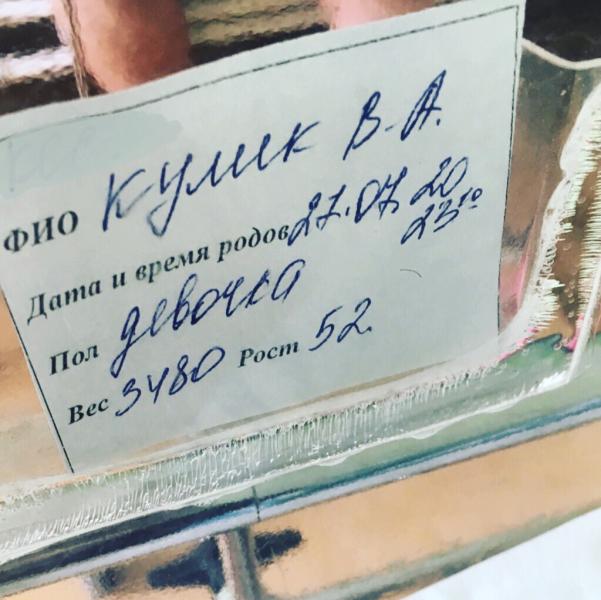 ФИО Кулик В. А.
Дата и время родов 27.07.20
23¹⁰
Пол девочка
Вес 3480 Рост 52.